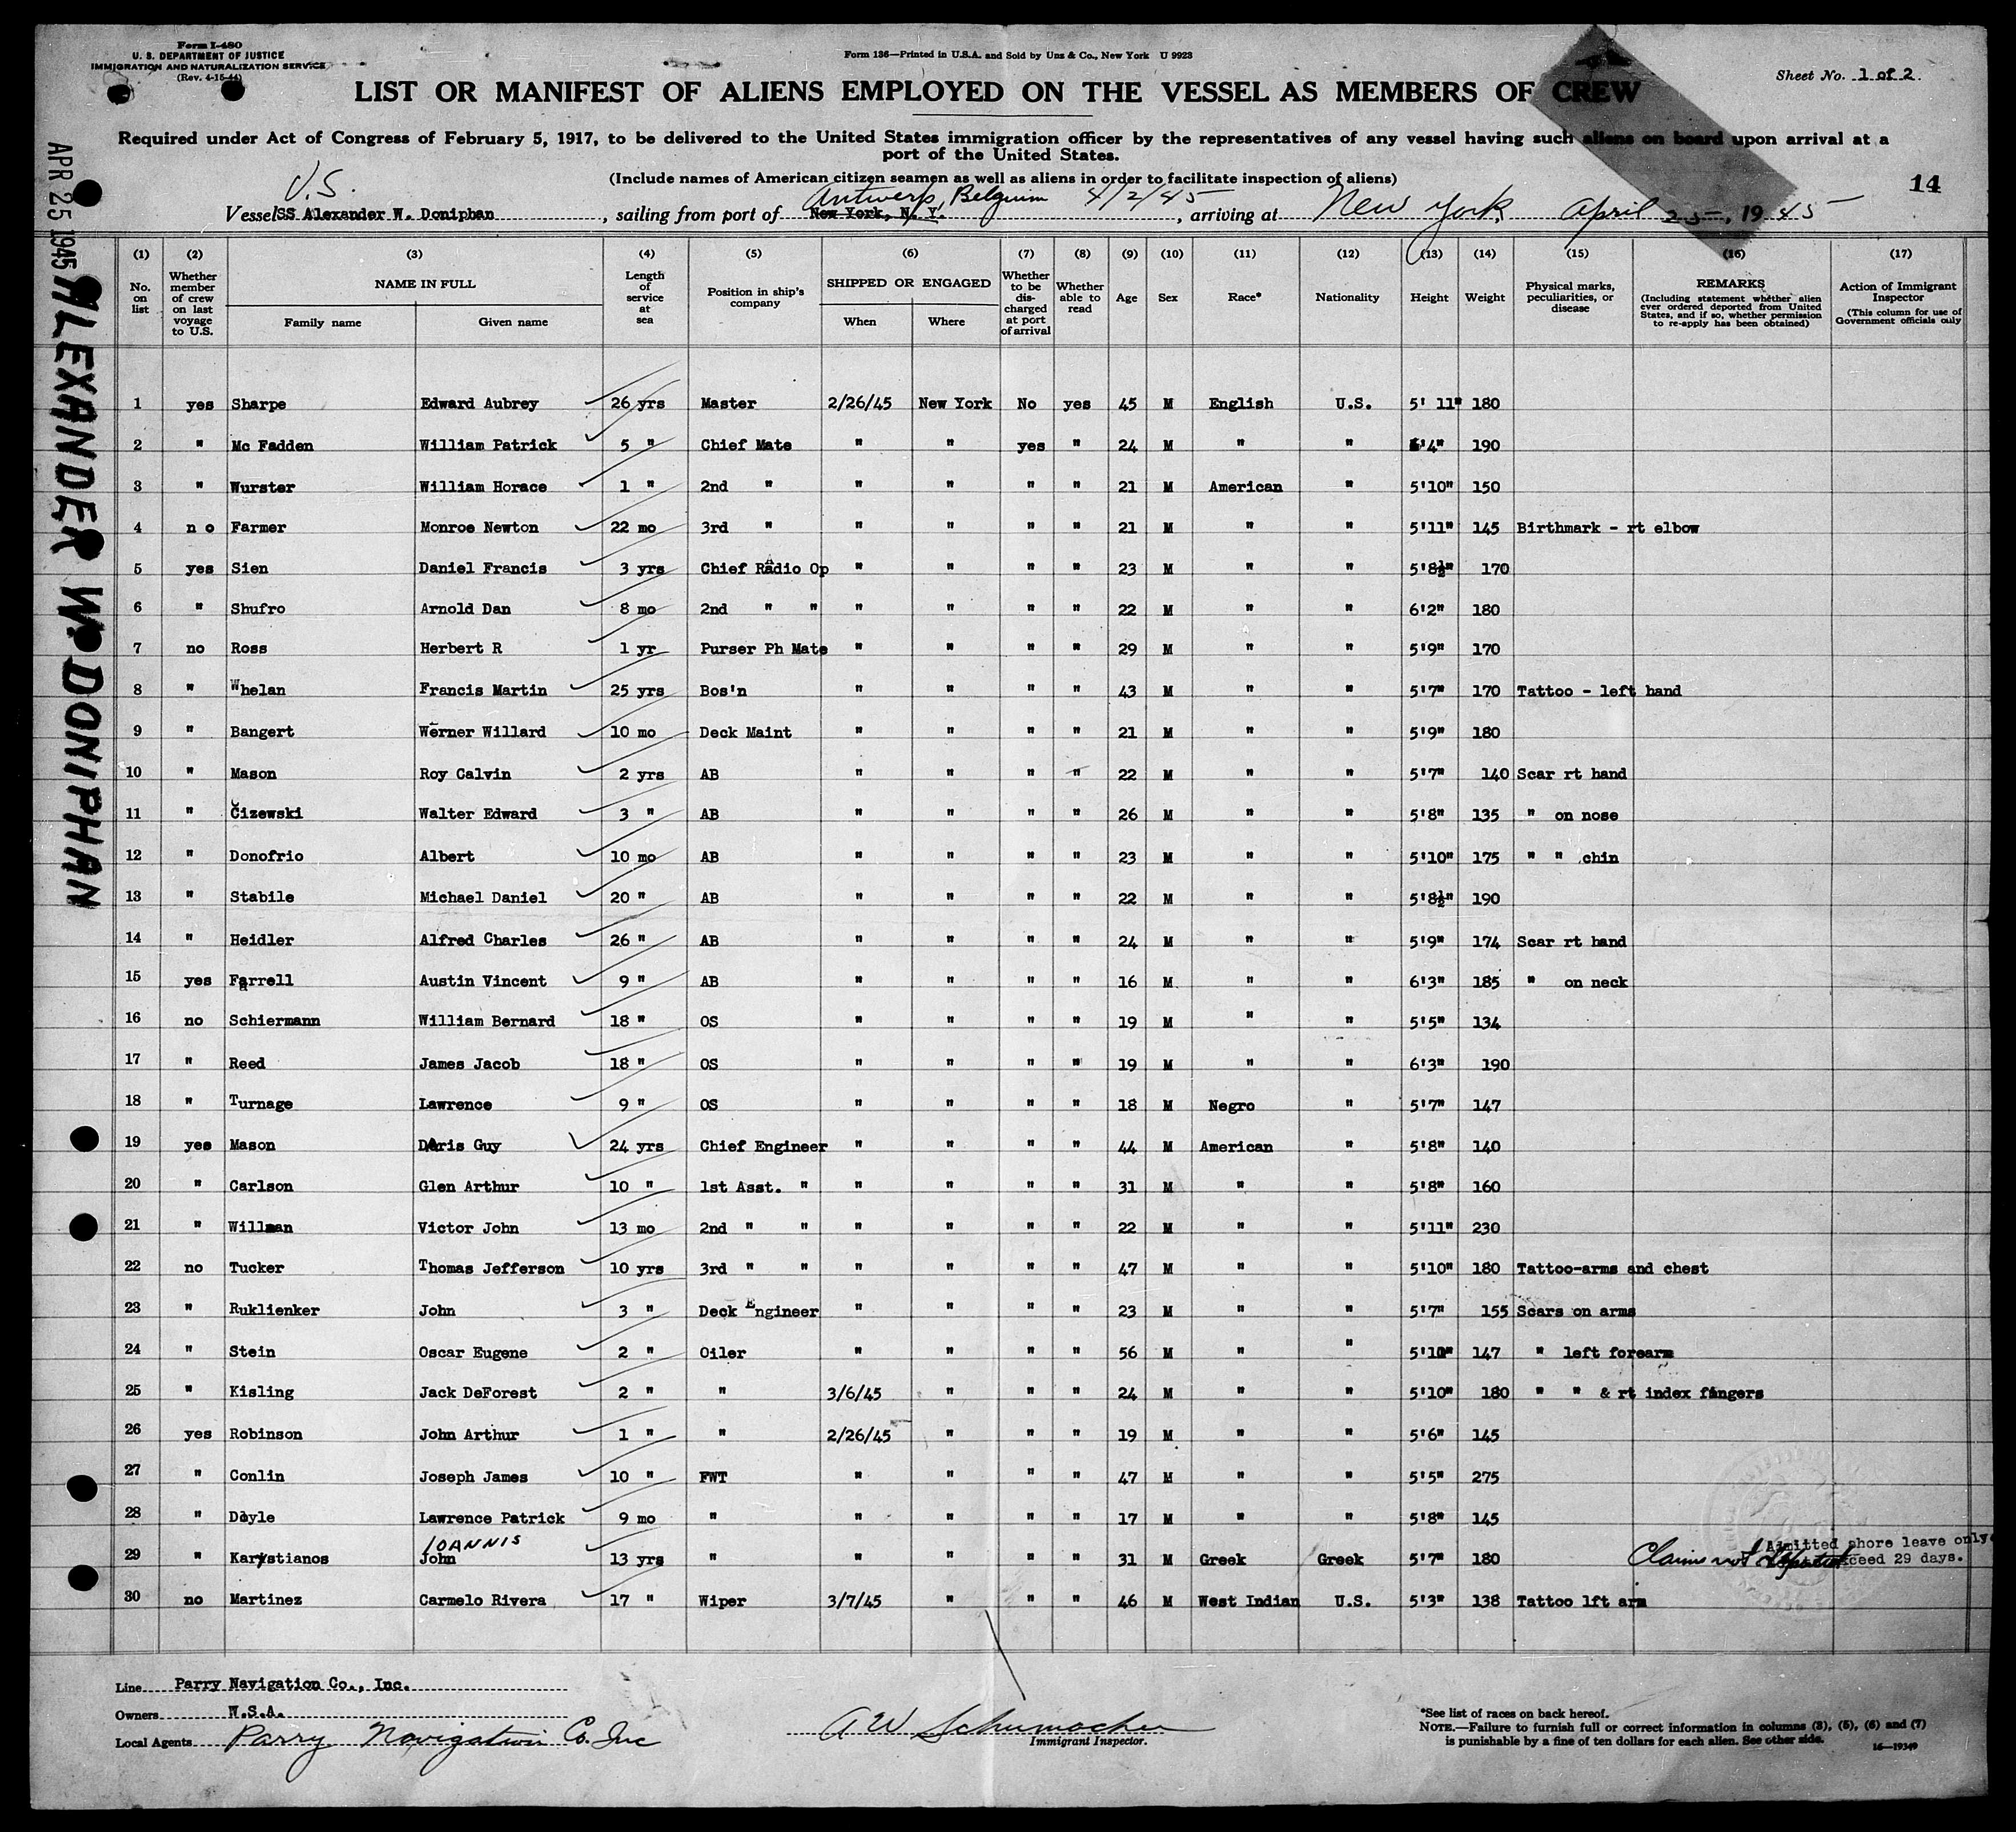 Form I-480
U. S. DEPARTMENT OF JUSTICE
IMMIGRATION AND NATURALIZATION SERVICE
(Rev. 4-15-44)
Form 136—Printed in U.S.A. and Sold by Unz & Co., New York U 9923
Sheet No. 1 of 2
LIST OR MANIFEST OF ALIENS EMPLOYED ON THE VESSEL AS MEMBERS OF CREW
Required under Act of Congress of February 5, 1917, to be delivered to the United States immigration officer by the representatives of any vessel having such aliens on board upon arrival at a
port of the United States.
(Include names of American citizen seamen as well as aliens in order to facilitate inspection of aliens)
14
U.S. Antwerp, Belgium 4/2/45
Vessel SS Alexander W. Doniphan, sailing from port of New York, N. Y., arriving at New York, April 25, 1945
APR 25 1945
ALEXANDER W. DONIPHAN
(1) (2) (3) (4) (5) (6) (7) (8) (9) (10) (11) (12) (13) (14) (15) (16) (17)
No. on list
Whether member of crew on last voyage to U.S.
NAME IN FULL
Family name
Given name
Length of service at sea
Position in ship's company
SHIPPED OR ENGAGED
When
Where
Whether to be discharged at port of arrival
Whether able to read
Age
Sex
Race*
Nationality
Height
Weight
Physical marks, peculiarities, or disease
REMARKS
(Including statement whether alien ever ordered deported from United States, and if so, whether permission to re-apply has been obtained)
Action of Immigrant Inspector
(This column for use of Government officials only
1 yes Sharpe Edward Aubrey 26 yrs Master 2/26/45 New York No yes 45 M English U.S. 5' 11" 180
2 " Mc Fadden William Patrick 5 " Chief Mate " " yes " 24 M " " 6'4" 190
3 " Wurster William Horace 1 " 2nd " " " " " 21 M American " 5'10" 150
4 n o Farmer Monroe Newton 22 mo 3rd " " " " " 21 M " " 5'11" 145 Birthmark - rt elbow
5 yes Sien Daniel Francis 3 yrs Chief Radio Op " " " " 23 M " " 5'8½" 170
6 " Shufro Arnold Dan 8 mo 2nd " " " " " " 22 M " " 6'2" 180
7 no Ross Herbert R 1 yr Purser Ph Mate " " " " 29 M " " 5'9" 170
8 " Whelan Francis Martin 25 yrs Bos'n " " " " 43 M " " 5'7" 170 Tattoo - left hand
9 " Bangert Werner Willard 10 mo Deck Maint " " " " 21 M " " 5'9" 180
10 " Mason Roy Calvin 2 yrs AB " " " " 22 M " " 5'7" 140 Scar rt hand
11 " Cizewski Walter Edward 3 " AB " " " " 26 M " " 5'8" 135 " on nose
12 " Donofrio Albert 10 mo AB " " " " 23 M " " 5'10" 175 " " chin
13 " Stabile Michael Daniel 20 " AB " " " " 22 M " " 5'8½" 190
14 " Heidler Alfred Charles 26 " AB " " " " 24 M " " 5'9" 174 Scar rt hand
15 yes Farrell Austin Vincent 9 " AB " " " " 16 M " " 6'3" 185 " on neck
16 no Schiermann William Bernard 18 " OS " " " " 19 M " " 5'5" 134
17 " Reed James Jacob 18 " OS " " " " 19 M " " 6'3" 190
18 " Turnage Lawrence 9 " OS " " " " 18 M Negro " 5'7" 147
19 yes Mason Doris Guy 24 yrs Chief Engineer " " " " 44 M American " 5'8" 140
20 " Carlson Glen Arthur 10 " 1st Asst. " " " " " 31 M " " 5'8" 160
21 " Willman Victor John 13 mo 2nd " " " " " " 22 M " " 5'11" 230
22 no Tucker Thomas Jefferson 10 yrs 3rd " " " " " " 47 M " " 5'10" 180 Tattoo-arms and chest
23 " Ruklienker John 3 " Deck Engineer " " " " 23 M " " 5'7" 155 Scars on arms
24 " Stein Oscar Eugene 2 " Oiler " " " " 56 M " " 5'10" 147 " left forearm
25 " Kisling Jack DeForest 2 " " 3/6/45 " " " 24 M " " 5'10" 180 " " & rt index fingers
26 yes Robinson John Arthur 1 " " 2/26/45 " " " 19 M " " 5'6" 145
27 " Conlin Joseph James 10 " FWT " " " " 47 M " " 5'5" 275
28 " Doyle Lawrence Patrick 9 mo " " " " " 17 M " " 5'8" 145
IOANNIS
29 " Karystianos John 13 yrs " " " " " 31 M Greek Greek 5'7" 180 Claims not deported Admitted shore leave only
exceed 29 days.
30 no Martinez Carmelo Rivera 17 " Wiper 3/7/45 " " " 46 M West Indian U.S. 5'3" 138 Tattoo lft arm
Line Parry Navigation Co., Inc.
Owners W.S.A.
Local Agents Parry Navigation Co. Inc
A W Schumacher
Immigrant Inspector.
*See list of races on back hereof.
NOTE.—Failure to furnish full or correct information in columns (3), (5), (6) and (7)
is punishable by a fine of ten dollars for each alien. See other side.
16—19349